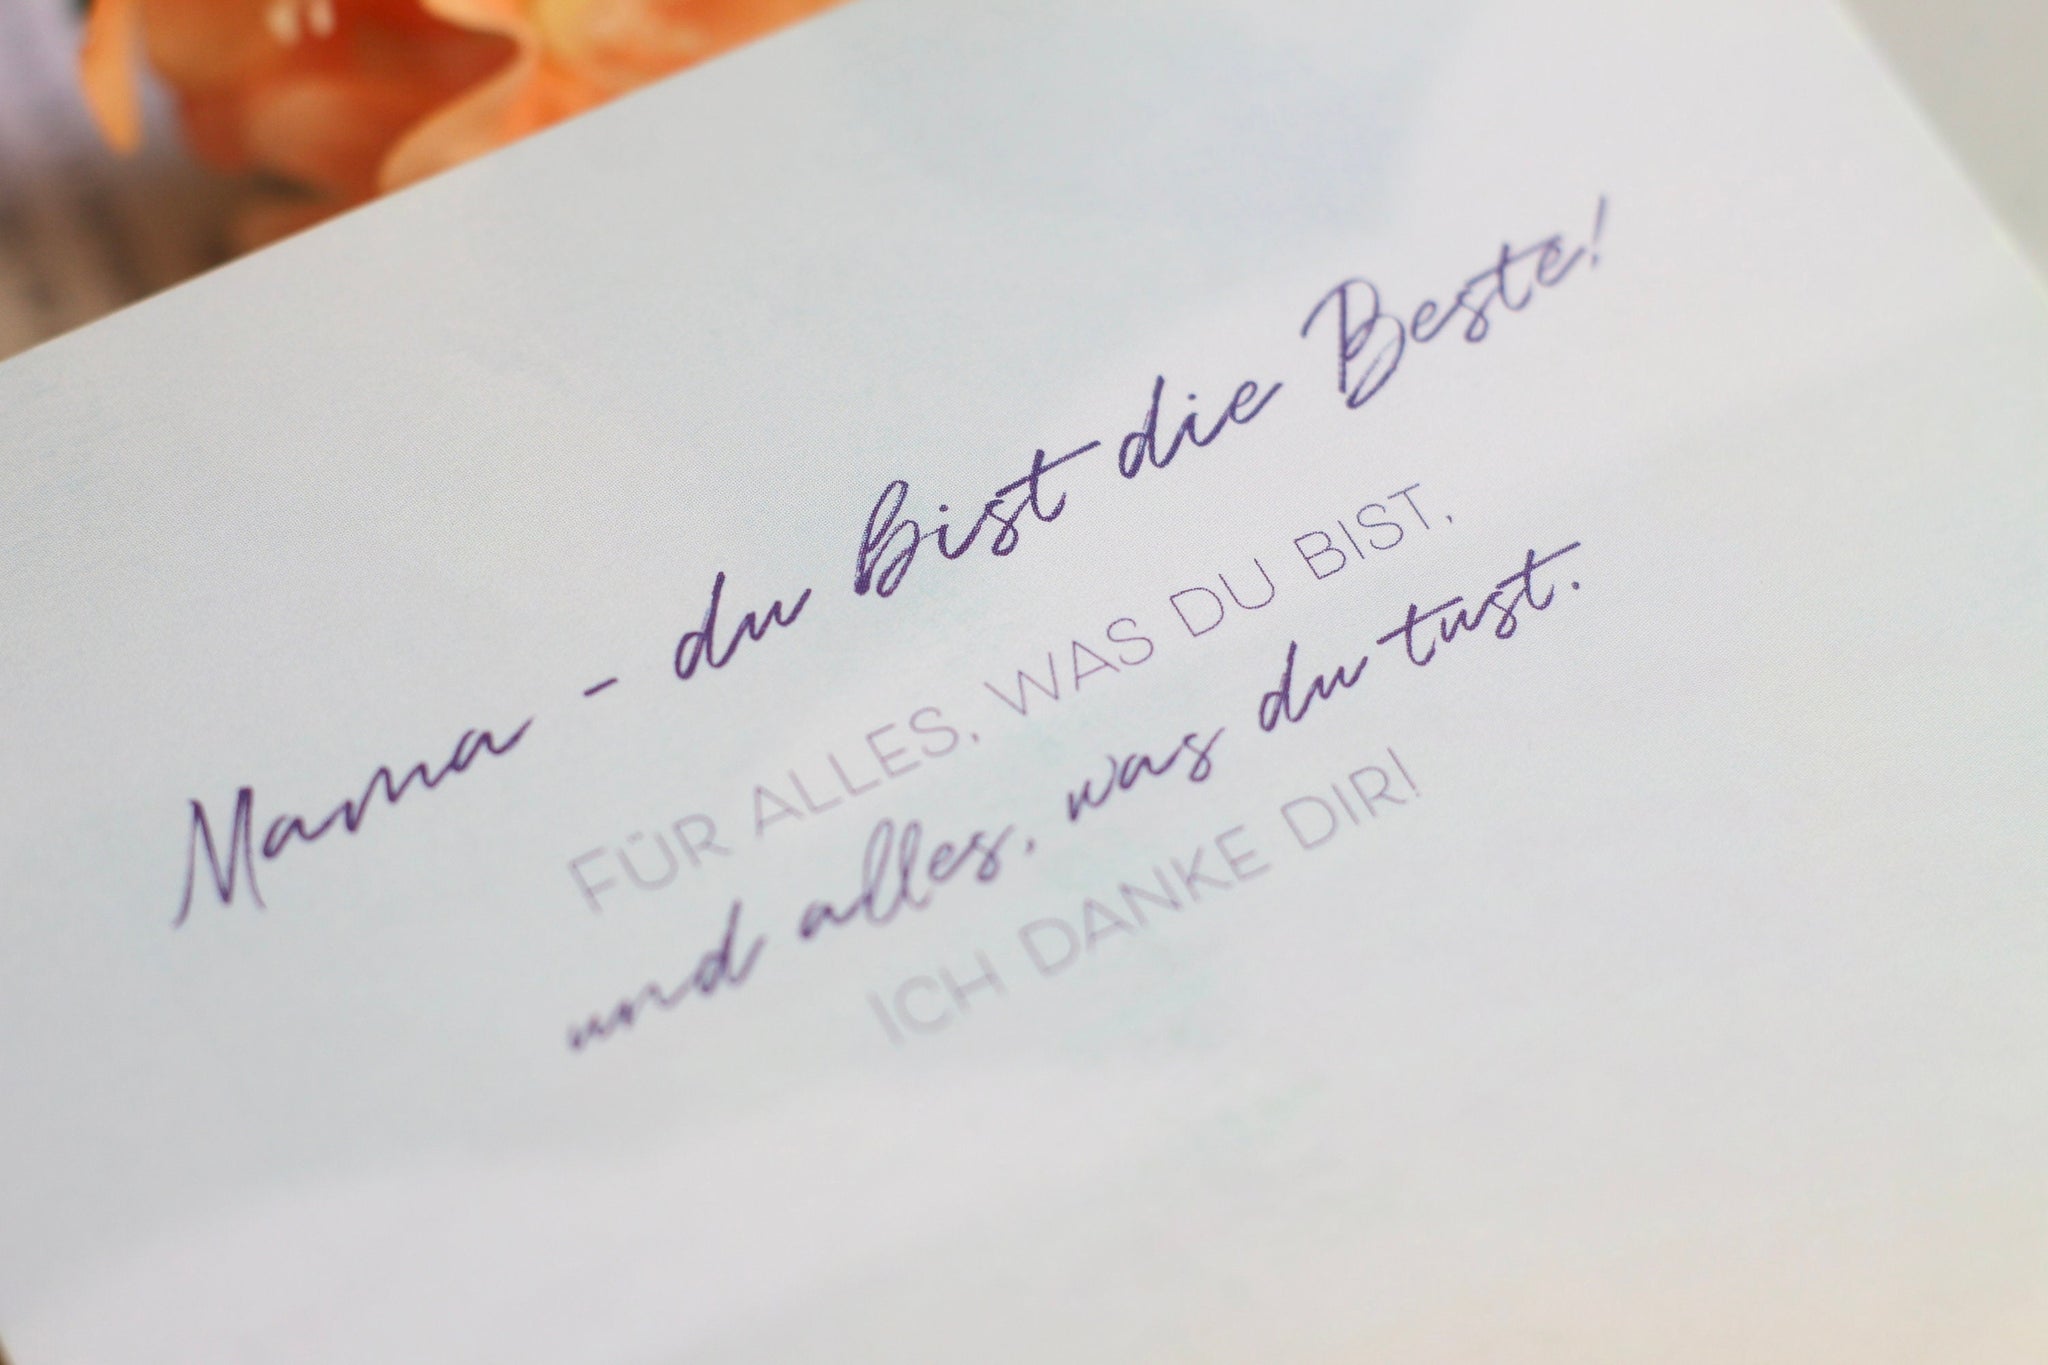 Mama - du bist die Beste!
FÜR ALLES, WAS DU BIST,
und alles, was du tust.
ICH DANKE DIR!